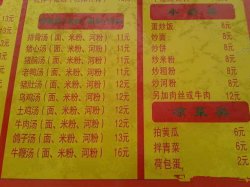 排骨汤（面、米粉、河粉） 11元
猪心汤（面、米粉、河粉） 12元
猪脑汤（面、米粉、河粉） 12元
老鸭汤（面、米粉、河粉） 12元
猪肚汤（面、米粉、河粉） 12元
乌鸡汤（面、米粉、河粉） 12元
土鸡汤（面、米粉、河粉） 12元
牛肉汤（面、米粉、河粉） 12元
鸽子汤（面、米粉、河粉） 13元
牛鞭汤（面、米粉、河粉） 16元
蛋炒饭 6元
炒面 6元
炒饼 6元
炒米粉 6元
炒河粉 6元
另加肉丝或牛肉 12元
凉菜类
拍黄瓜 6元
拌青菜 6元
荷包蛋 2元